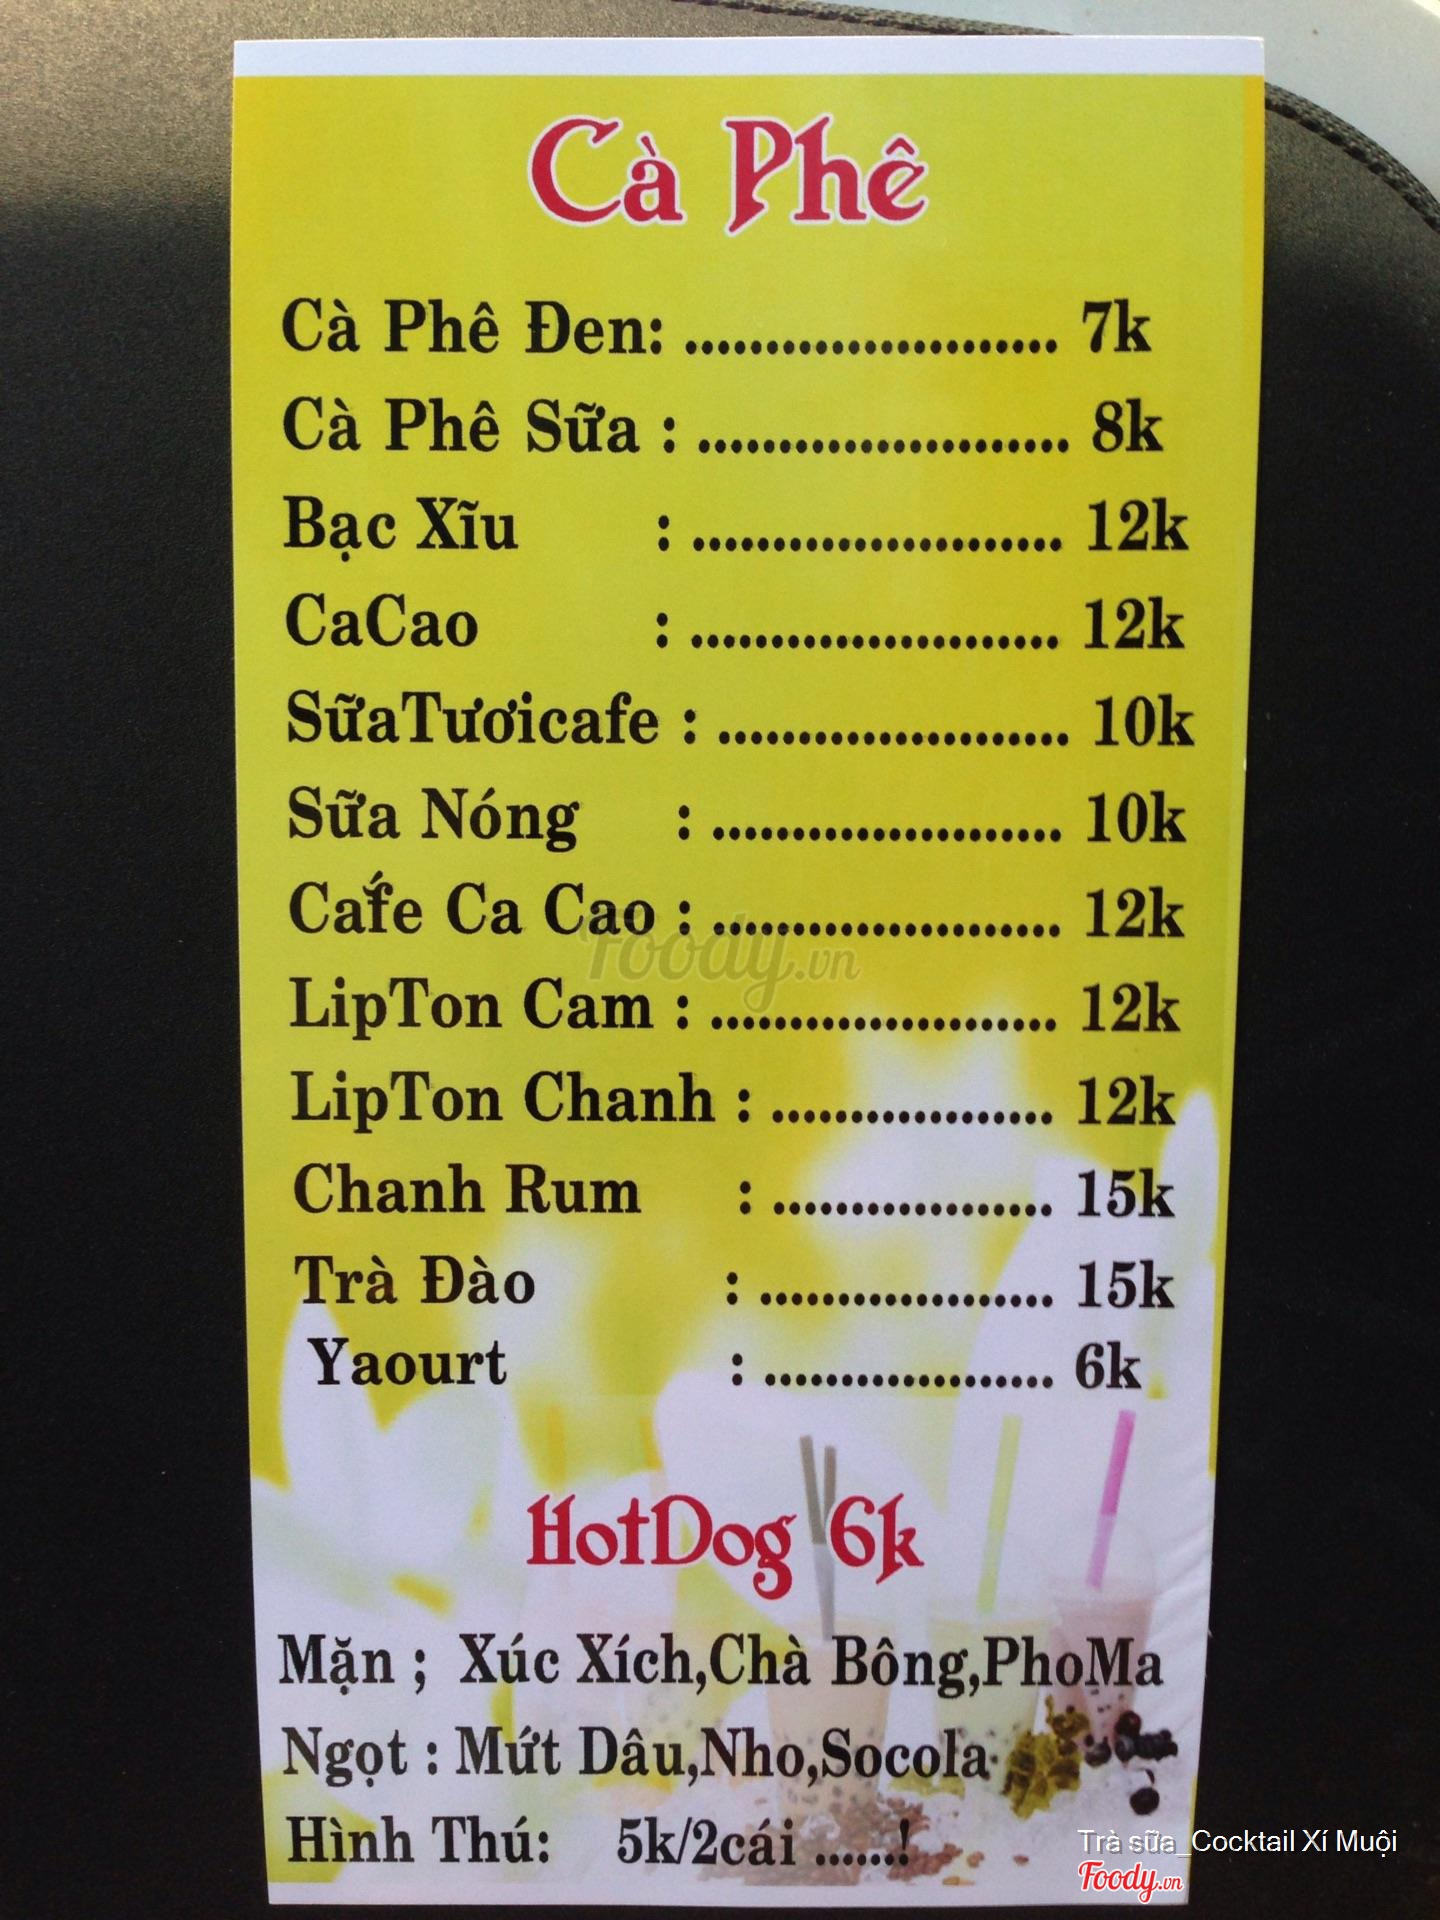 Cà Phê
Cà Phê Đen: ....................... 7k
Cà Phê Sữa : ....................... 8k
Bạc Xĩu : ....................... 12k
CaCao : ....................... 12k
SữaTươicafe : ...................... 10k
Sữa Nóng : ...................... 10k
Café Ca Cao : ...................... 12k
Foody.vn
LipTon Cam : ...................... 12k
LipTon Chanh : .................. 12k
Chanh Rum : .................. 15k
Trà Đào : ................... 15k
Yaourt : ................... 6k
HotDog 6k
Mặn ; Xúc Xích,Chà Bông,PhoMa
Ngọt : Mứt Dâu,Nho,Socola
Hình Thú: 5k/2cái ......!
Trà sữa_Cocktail Xí Muội
Foody.vn